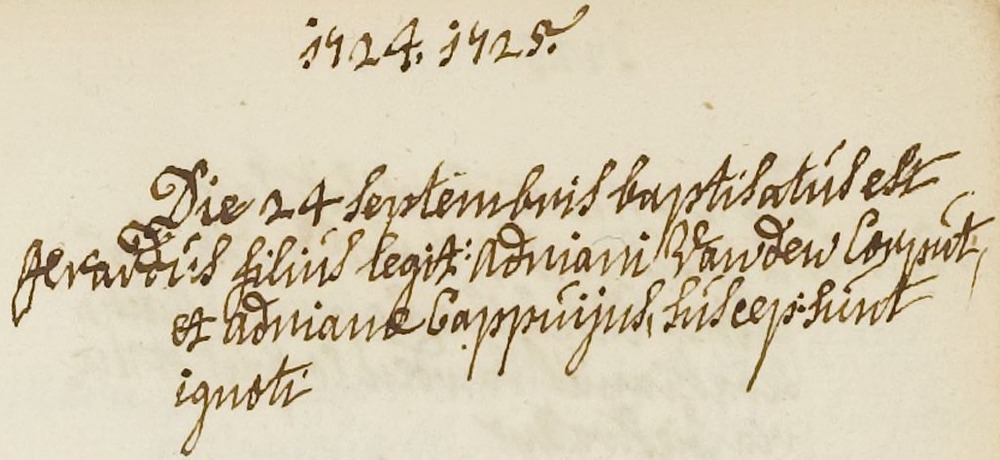 1724. 1725.
Die 24 septembris baptisatus est
Gerardus filius legit: Adriani Van den Corput,
et Adrianæ Cappuijns, suscep: sunt
ignoti